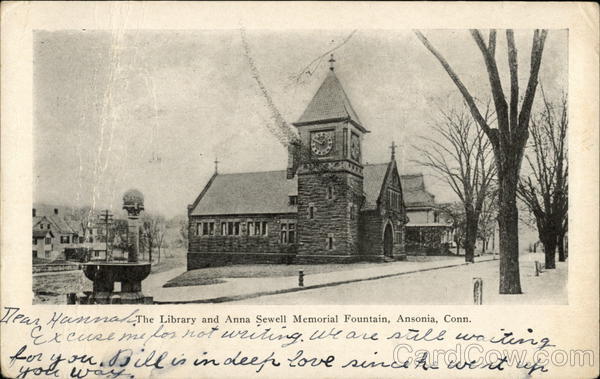 The Library and Anna Sewell Memorial Fountain, Ansonia, Conn.
Dear Hannah,
Excuse me for not writing. We are still waiting
for you. Bill is in deep love since he went up
you way.
CardCow.com